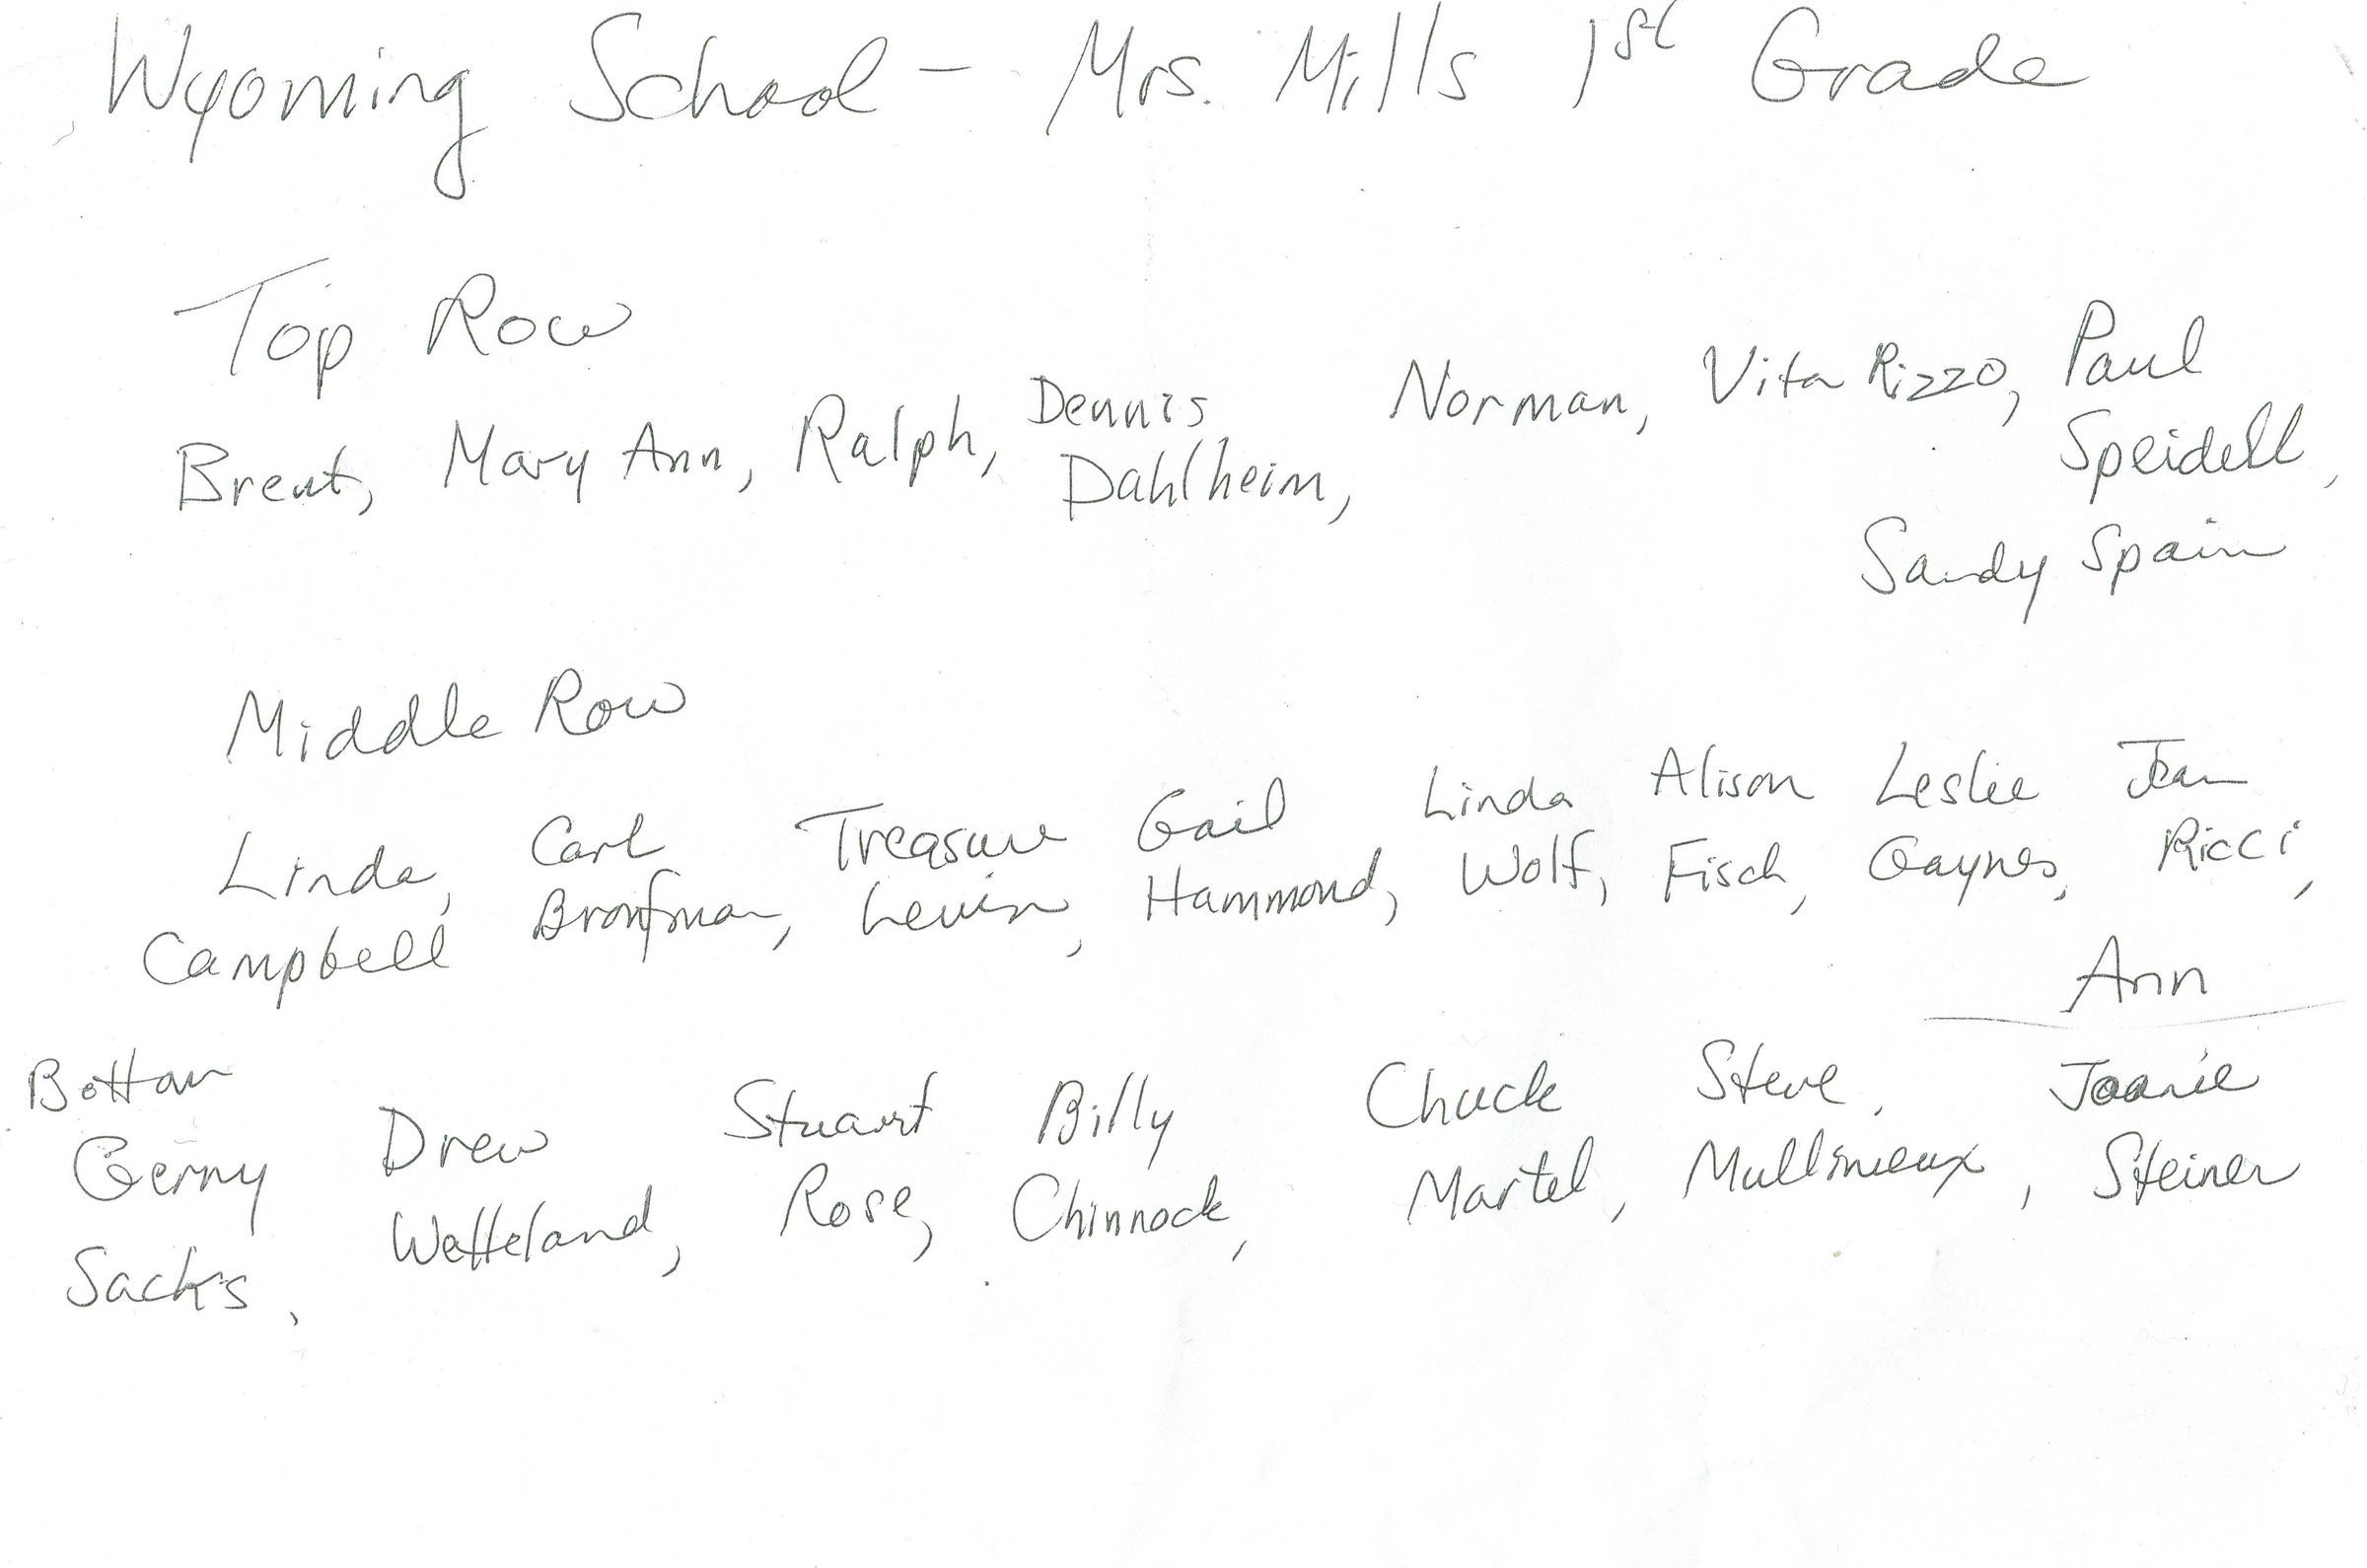 Wyoming School - Mrs. Mills 1st Grade
Top Row
Brent, Mary Ann, Ralph, Dennis Dahlheim, Norman, Vita Rizzo, Paul Speidell,
Sandy Spain
Middle Row
Linda, Carl Treasure Gail Linda Alison Leslie Jean
Campbell Bronfman, Levin, Hammond, Wolf, Fisch, Gaynes, Ricci,
Ann
Bottom
Gerry Drew Stuart Billy Chuck Steve, Joanie
Sacks, Wetteland, Rose, Chinnock, Martel, Mullinieux, Steiner